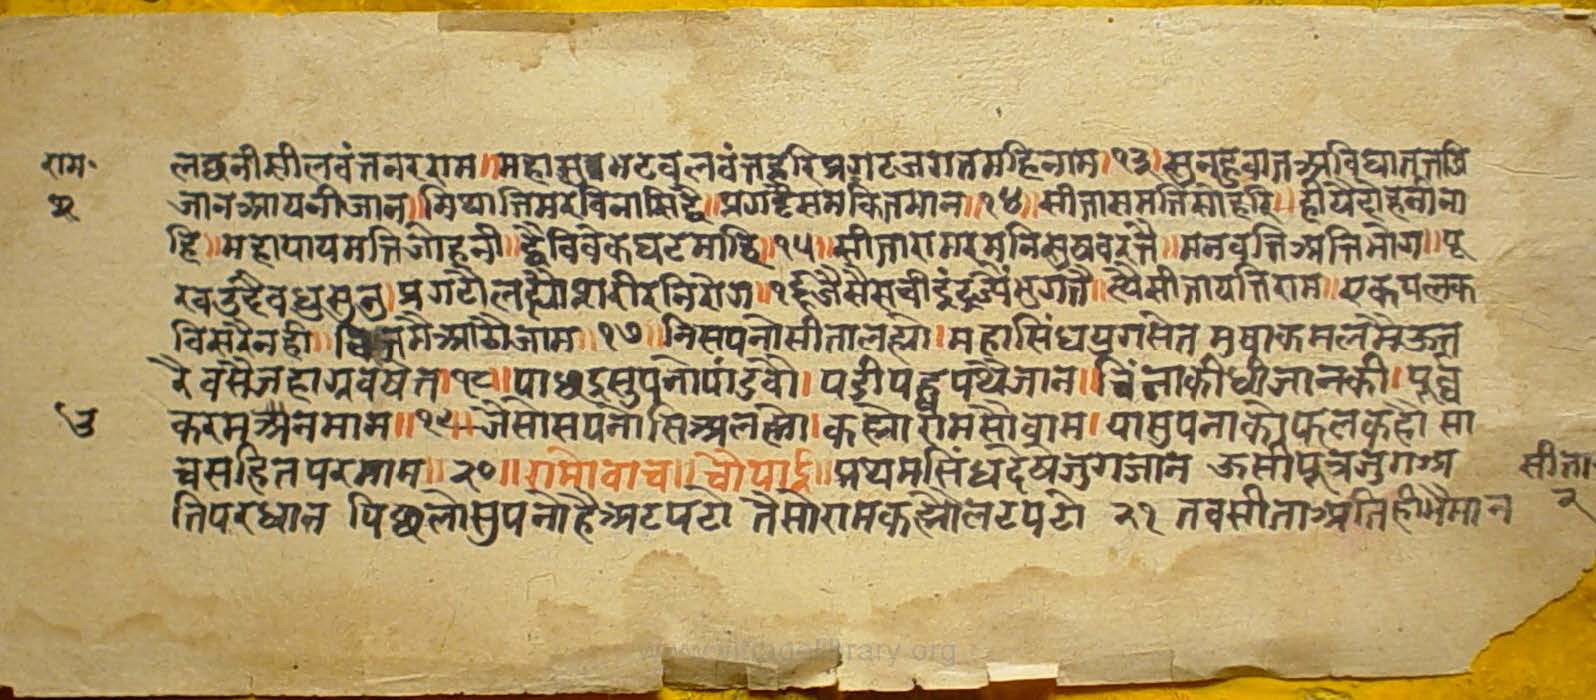 राम॰ लछनी सीलवंत नर राम॥ महा सुभट बलवंत हरि प्रगट जगत महि नाम।१३। सुनहु वात अविघात
२ जान आयनी जान॥ मिथा तिमर विनासि है॥ प्रगटै समकित मान॥१४॥ सीता सम तिसो हरि॥ हीयै
हि॥ महा पाय मति जो हनी॥ है विवेक घट माहि॥१५॥ सीता राम रमनि सुष वरतै॥ मन वृति अति भोग॥ पू
रव उदै वध्रु सुनु। प्रगटौ लह्यौ शरीर निरोग॥१६ जैसै सची इंद्र उपं भुगतै॥ त्यै सीता पति राम॥ एक पलक
विसरै नही॥ रमै आठौ जाम॥१७॥ निस पनो सीता लह्यो। महा सिंघ युग सेत मुषा कमल मै ऊत
रै वसै जहा अवषेत।१८॥ पाछु इ सुपनो पांडवौ। पडी पहुप पथै जान॥ चिंताकी धी जानकी। पूर्व्व
६ करम अनमाम॥१९॥ जैसो सपनो सि अलह्यो। कह्यो राम सौ वाम। या सुपनाको फल कहौ सा
च सहित परमाम॥२०॥ रामोवाच॥ चौपाई॥ प्रथम सिंघ देष जुग जान ऊसी पूत्र जुग अ सीता॰
ति परधान पिछलो सुपनो है अटपटो तैसो राम कह्यौ लटपटो २१ तव सीता अति ही भै मान २